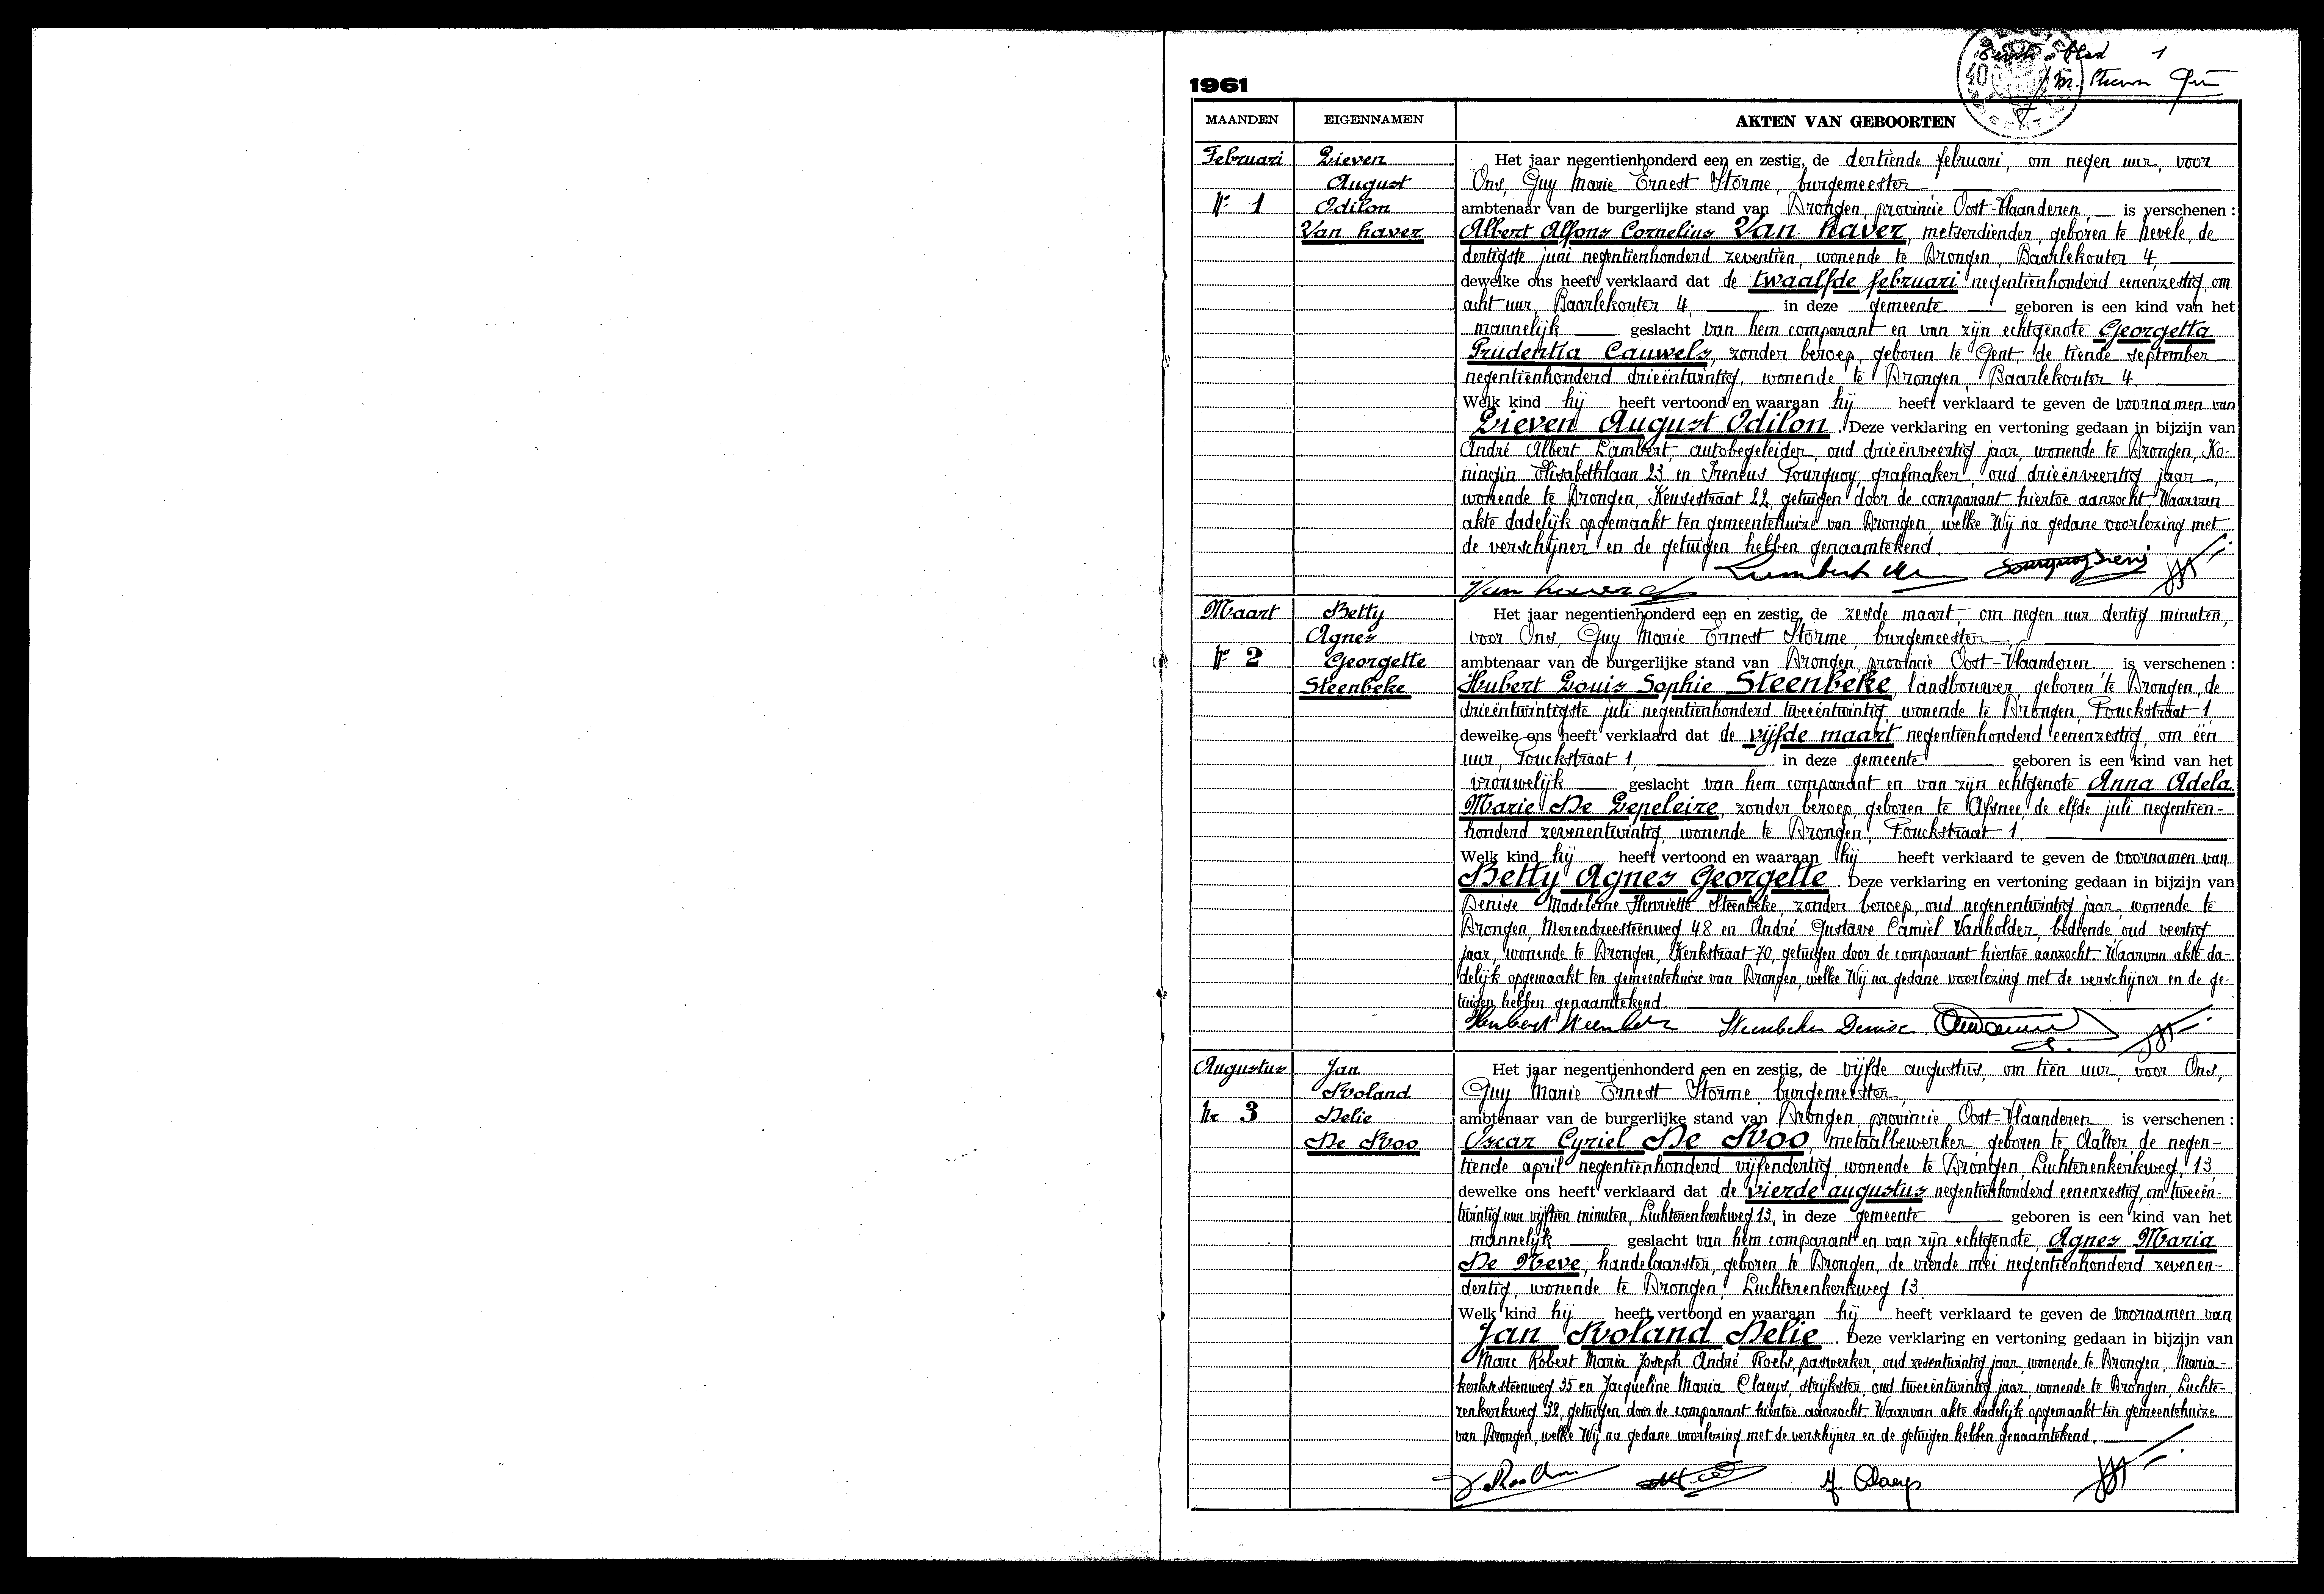 Eerste blad 1
1961
MAANDEN EIGENNAMEN AKTEN VAN GEBOORTEN
Februari
Nr 1
Lieven
August
Odilon
Van haver
Het jaar negentienhonderd een en zestig, de dertiende februari, om negen uur, voor
Ons, Guy Marie Ernest Storme, burgemeester
ambtenaar van de burgerlijke stand van Drongen, provincie Oost-Vlaanderen, is verschenen :
Albert Alfons Cornelius Van haver, metserdiender, geboren te Nevele, de
dertigste juni negentienhonderd zeventien, wonende te Drongen, Baarlekouter 4,
dewelke ons heeft verklaard dat de twaalfde februari negentienhonderd eenenzestig, om
acht uur, Baarlekouter 4, in deze gemeente geboren is een kind van het
mannelijk geslacht van hem comparant en van zijn echtgenote Georgetta
Prudentia Cauwels, zonder beroep, geboren te Gent, de tiende september
negentienhonderd drieëntwintig, wonende te Drongen, Baarlekouter 4.
Welk kind hij heeft vertoond en waaraan hij heeft verklaard te geven de voornamen van
Lieven August Odilon. Deze verklaring en vertoning gedaan in bijzijn van
André Albert Lambert, autobegeleider, oud drieënveertig jaar, wonende te Drongen, Ko-
ningin Elisabethlaan 23 en Ireneus Fourquoy, grafmaker, oud drieënveertig jaar,
wonende te Drongen, Keuzestraat 22, getuigen door de comparant hiertoe aanzocht. Waarvan
akte dadelijk opgemaakt ten gemeentehuize van Drongen, welke Wij na gedane voorlezing met
de verschijner en de getuigen hebben genaamtekend.
Van haver
Maart
Nr 2
Betty
Agnes
Georgette
Steenbeke
Het jaar negentienhonderd een en zestig, de zesde maart, om negen uur dertig minuten,
voor Ons, Guy Marie Ernest Storme, burgemeester
ambtenaar van de burgerlijke stand van Drongen, provincie Oost-Vlaanderen is verschenen :
Hubert Louis Sophie Steenbeke, landbouwer, geboren te Drongen, de
drieëntwintigste juli negentienhonderd tweeëntwintig, wonende te Drongen, Fouckstraat 1
dewelke ons heeft verklaard dat de vijfde maart negentienhonderd eenenzestig, om één
uur, Fouckstraat 1, in deze gemeente geboren is een kind van het
vrouwelijk geslacht van hem comparant en van zijn echtgenote Anna Adela
Marie De Lepeleire, zonder beroep, geboren te Afsnee, de elfde juli negentien-
honderd zevenentwintig, wonende te Drongen, Fouckstraat 1.
Welk kind hij heeft vertoond en waaraan hij heeft verklaard te geven de voornamen van
Betty Agnes Georgette. Deze verklaring en vertoning gedaan in bijzijn van
Denise Madeleine Henriette Steenbeke, zonder beroep, oud negenentwintig jaar, wonende te
Drongen, Merendreesteenweg 48 en André Gustave Camiel Vanholder, bediende, oud veertig
jaar, wonende te Drongen, Kerkstraat 70, getuigen door de comparant hiertoe aanzocht. Waarvan akte da-
delijk opgemaakt ten gemeentehuize van Drongen, welke Wij na gedane voorlezing met de verschijner en de ge-
tuigen hebben genaamtekend.
Hubert Steenbeke Steenbeke Denise
Augustus
Nr 3
Jan
Roland
Delie
De Roo
Het jaar negentienhonderd een en zestig, de vijfde augustus, om tien uur, voor Ons,
Guy Marie Ernest Storme, burgemeester
ambtenaar van de burgerlijke stand van Drongen, provincie Oost-Vlaanderen is verschenen :
Oscar Cyriel De Roo, metaalbewerker, geboren te Aalter, de negen-
tiende april negentienhonderd vijfendertig, wonende te Drongen, Luchterenkerkweg, 13
dewelke ons heeft verklaard dat de vierde augustus negentienhonderd eenenzestig, om tweeën-
twintig uur vijftien minuten, Luchterenkerkweg 13, in deze gemeente geboren is een kind van het
mannelijk geslacht van hem comparant en van zijn echtgenote, Agnes Maria
De Neve, handelaarster, geboren te Drongen, de vierde mei negentienhonderd zevenen-
dertig, wonende te Drongen, Luchterenkerkweg 13.
Welk kind hij heeft vertoond en waaraan hij heeft verklaard te geven de voornamen van
Jan Roland Delie. Deze verklaring en vertoning gedaan in bijzijn van
Marc Robert Maria Joseph André Roels, paswerker, oud zesentwintig jaar, wonende te Drongen, Maria-
kerksesteenweg 35 en Jacqueline Maria Claeys, strijkster, oud tweeëntwintig jaar, wonende te Drongen, Luchte-
renkerkweg 32, getuigen door de comparant hiertoe aanzocht. Waarvan akte dadelijk opgemaakt ten gemeentehuize
van Drongen, welke Wij na gedane voorlezing met de verschijner en de getuigen hebben genaamtekend.
J. Claeys